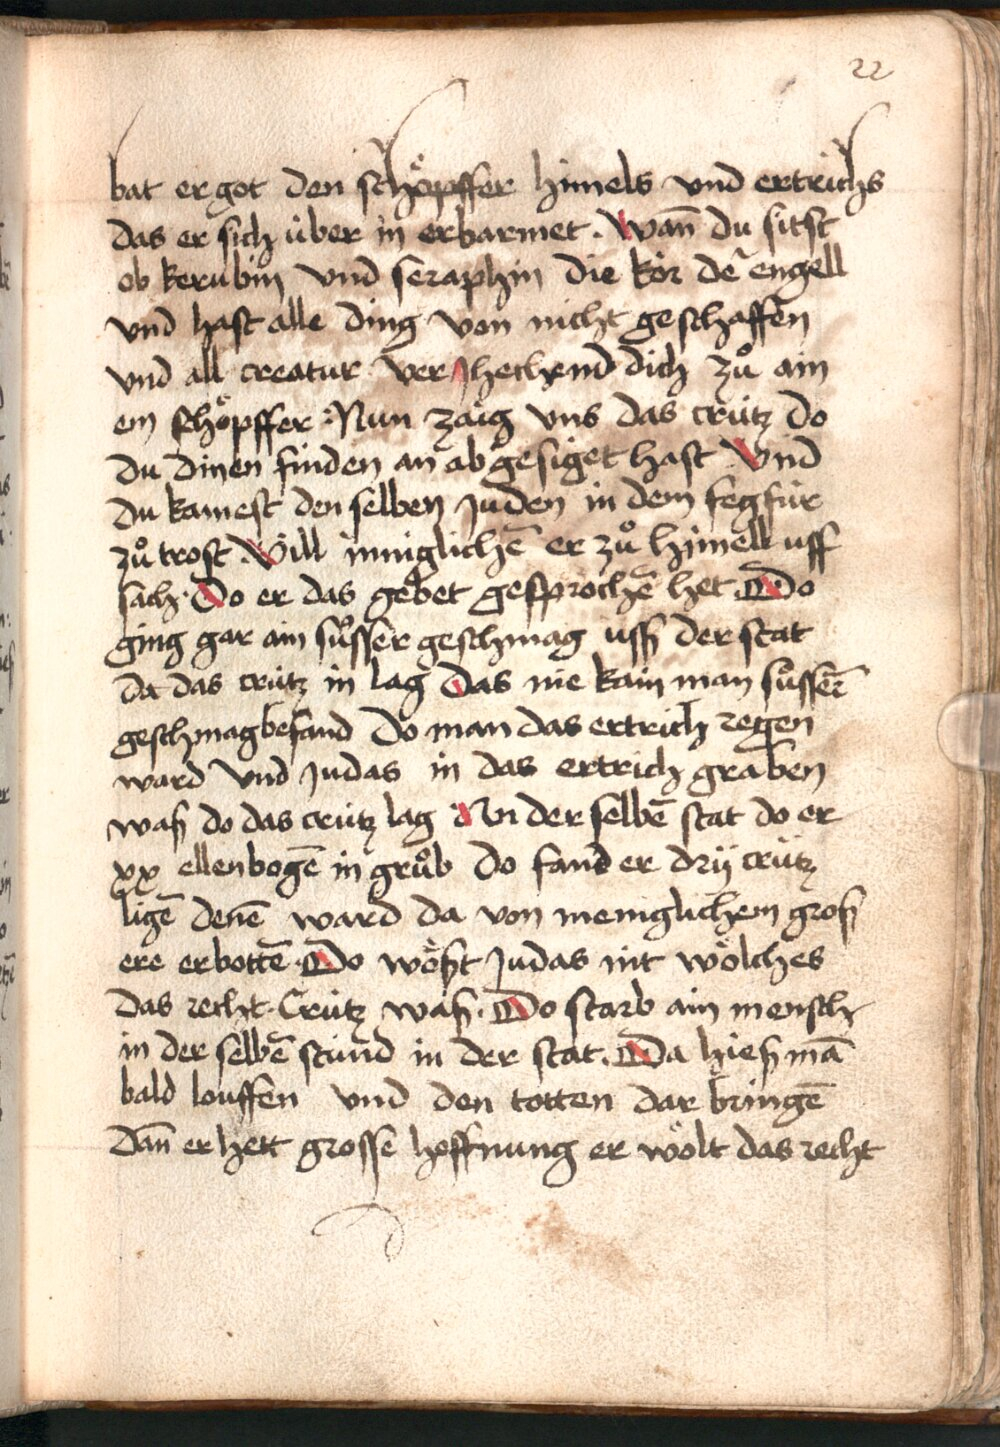 22
bat er got den schöpffer himels vnd ertrichs
das er sich über in erbarmet. Wan̄ du sitst
ob kerubin vnd seraphin die kör dē engell
vnd hast alle ding von nicht geschaffen
vnd all creatur ver Jhechend dich zů ain
em schöpffer. Nun zaig vns das crütz do
du dinen finden an ab gesiget hast Vnd
du kamest den selben Juden in dem fegfür
zů trost. Vill inniglichē er zů himell uff
sach. Do er das gebet gesprochē het. Do
ging gar ain sůsser geschmag uß der stat
da das crütz in lag Das nie kain man sůssere
geschmag befand Do man das ertrich regen
ward vnd Judas in das ertrich graben
waß do das crütz lag An der selbē stat do er
xx ellenbogē in grůb Do fand er drÿ crütz
ligē denē ward da von meniglichem groß
ere erbottē. Do wößt Judas nit wölches
das recht. Crütz waß. Do starb ain mensch
in der selbē stund in der stat. Da hieß mā
bald louffen vnd den totten dar bringē
Dan̄ er hett grosse hoffnung er wölt das recht